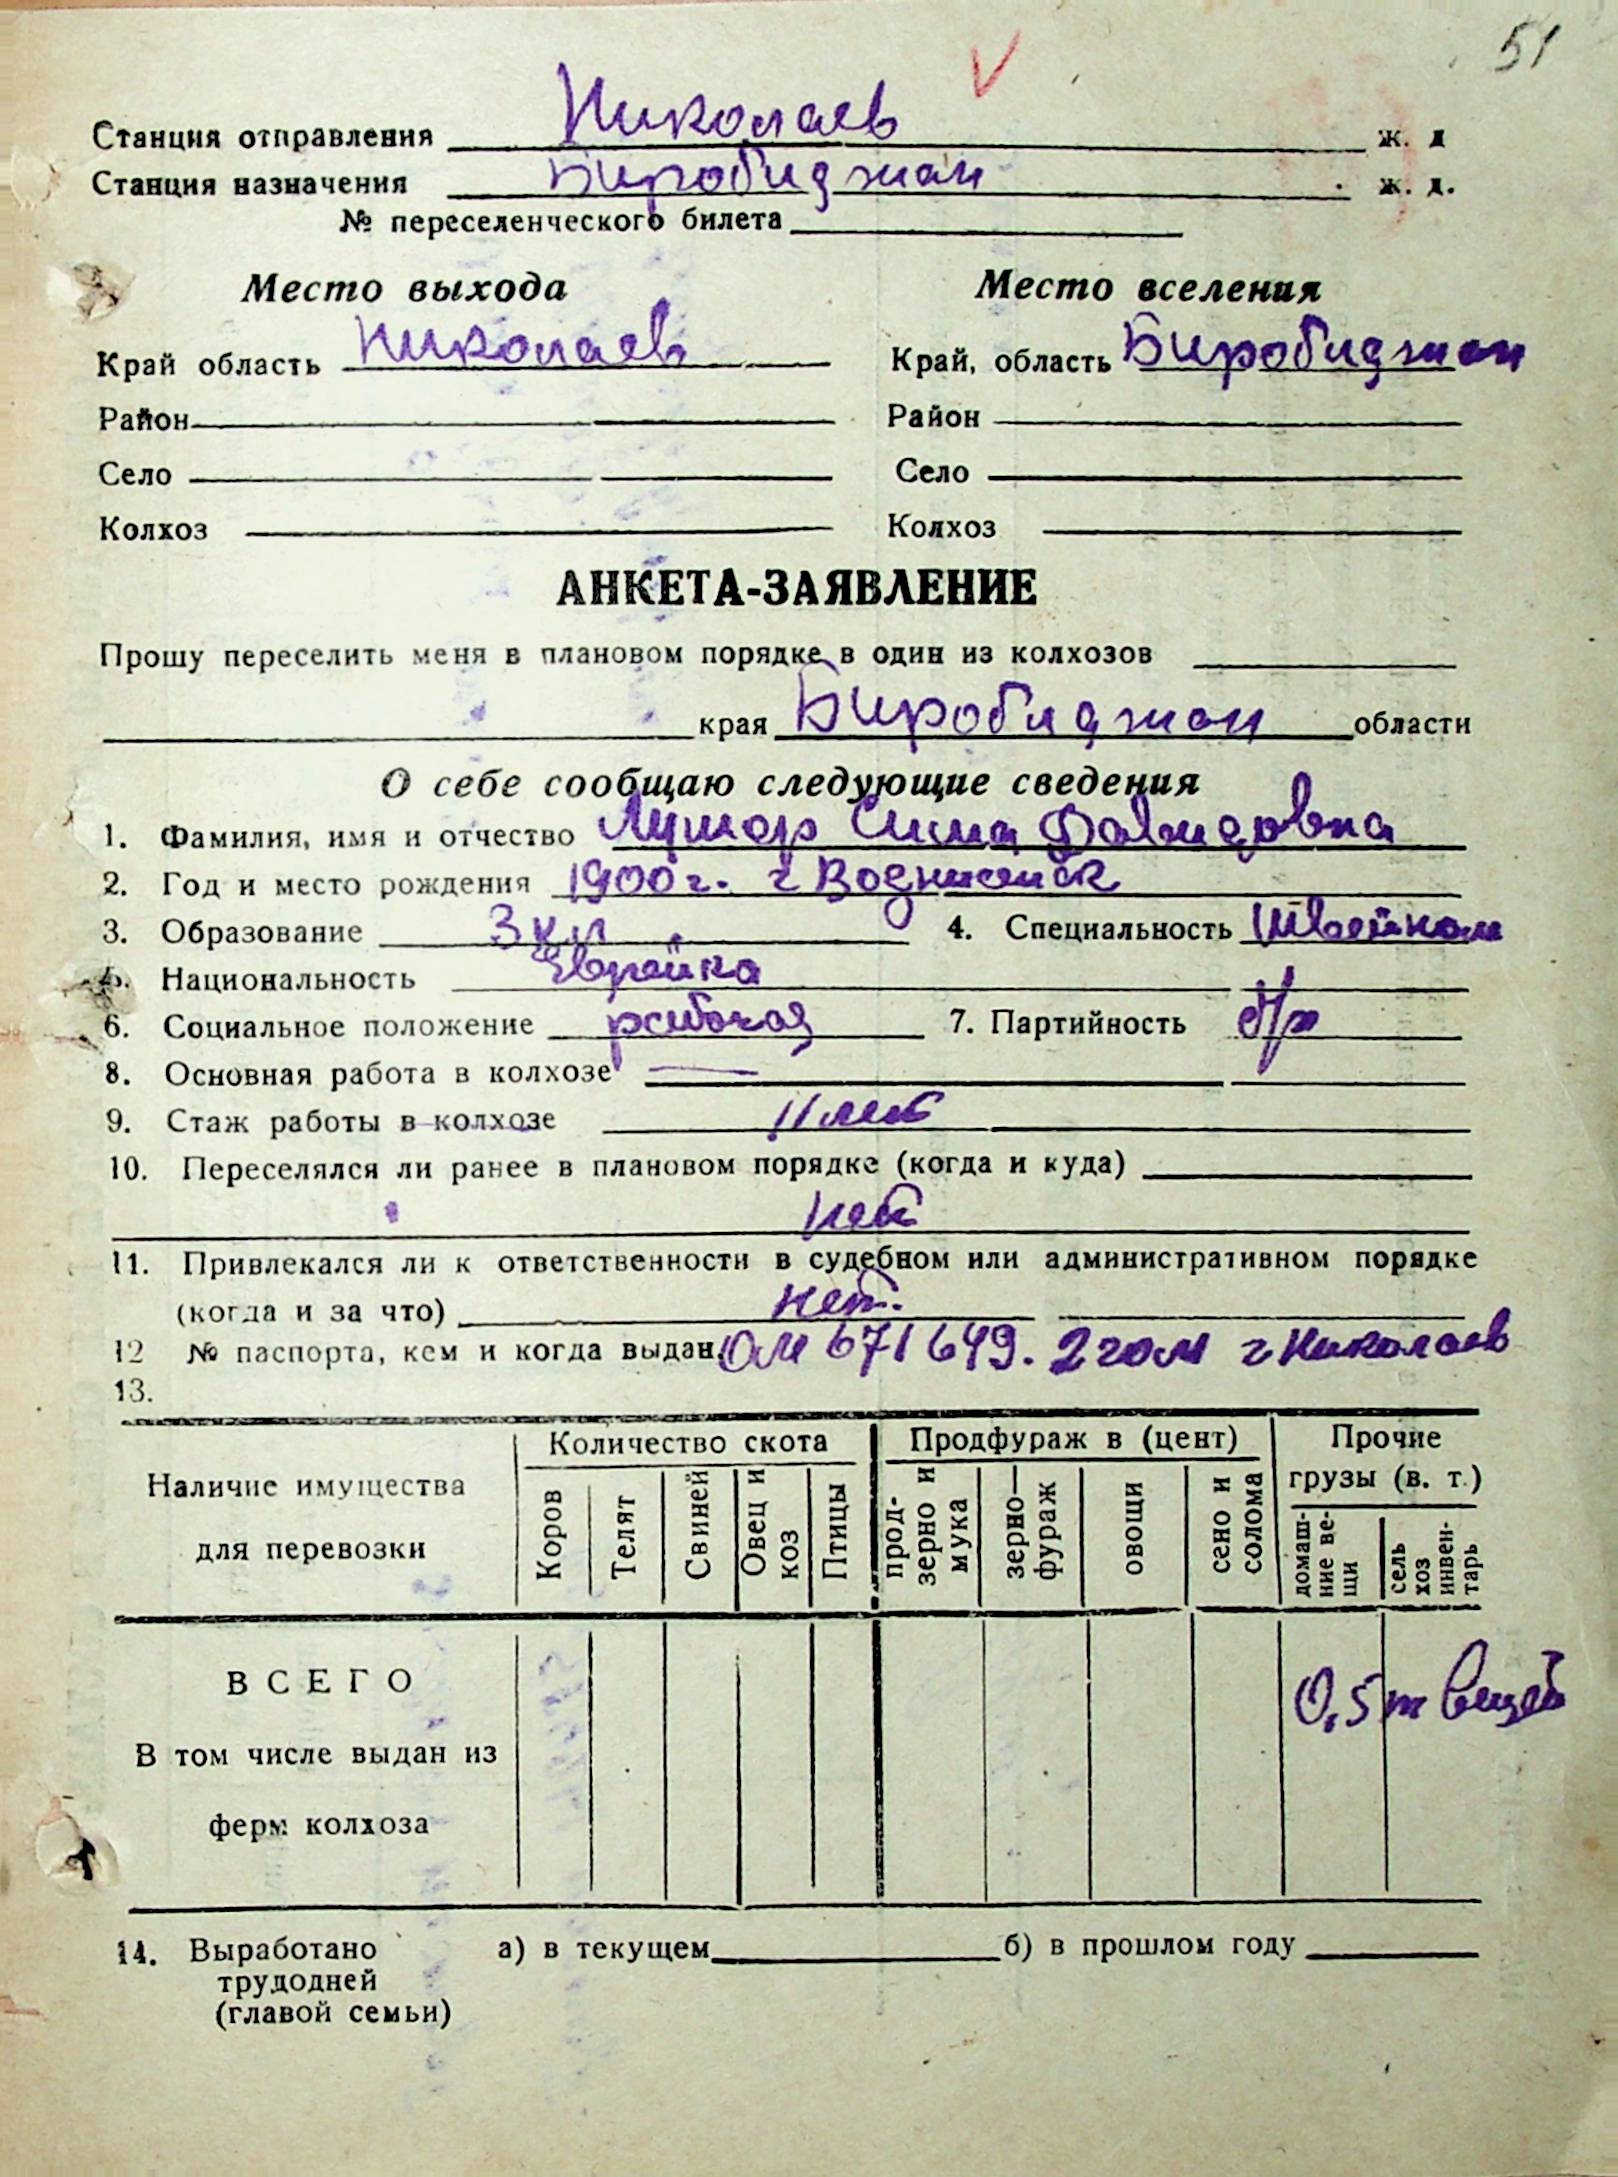 51
Станция отправления Николаев ж. д
Станция назначения Биробиджан ж. д.
№ переселенческого билета
Место выхода
Место вселения
Край область Николаев
Край, область Биробиджан
Район
Район
Село
Село
Колхоз
Колхоз
АНКЕТА-ЗАЯВЛЕНИЕ
Прошу переселить меня в плановом порядке в один из колхозов
края Биробиджан области
О себе сообщаю следующие сведения
1. Фамилия, имя и отчество Давидовна
2. Год и место рождения 1900 г. г
3. Образование 3 кл 4. Специальность
5. Национальность Еврейка
6. Социальное положение рабочая 7. Партийность б/п
8. Основная работа в колхозе —
9. Стаж работы в колхозе 11 лет
10. Переселялся ли ранее в плановом порядке (когда и куда)
нет
11. Привлекался ли к ответственности в судебном или административном порядке
(когда и за что) нет.
12 № паспорта, кем и когда выдан. 671649. 2 гом г Николаев
13.
Наличие имущества
для перевозки
Количество скота
Коров
Телят
Свиней
Овец и
коз
Птицы
Продфураж в (цент)
прод-
зерно и
мука
зерно—
фураж
овощи
сено и
солома
Прочие
грузы (в. т.)
домаш-
ние ве-
щи
сель
хоз
инвен-
тарь
ВСЕГО
0,5 т вещей
В том числе выдан из
ферм колхоза
14. Выработано а) в текущем б) в прошлом году
трудодней
(главой семьи)